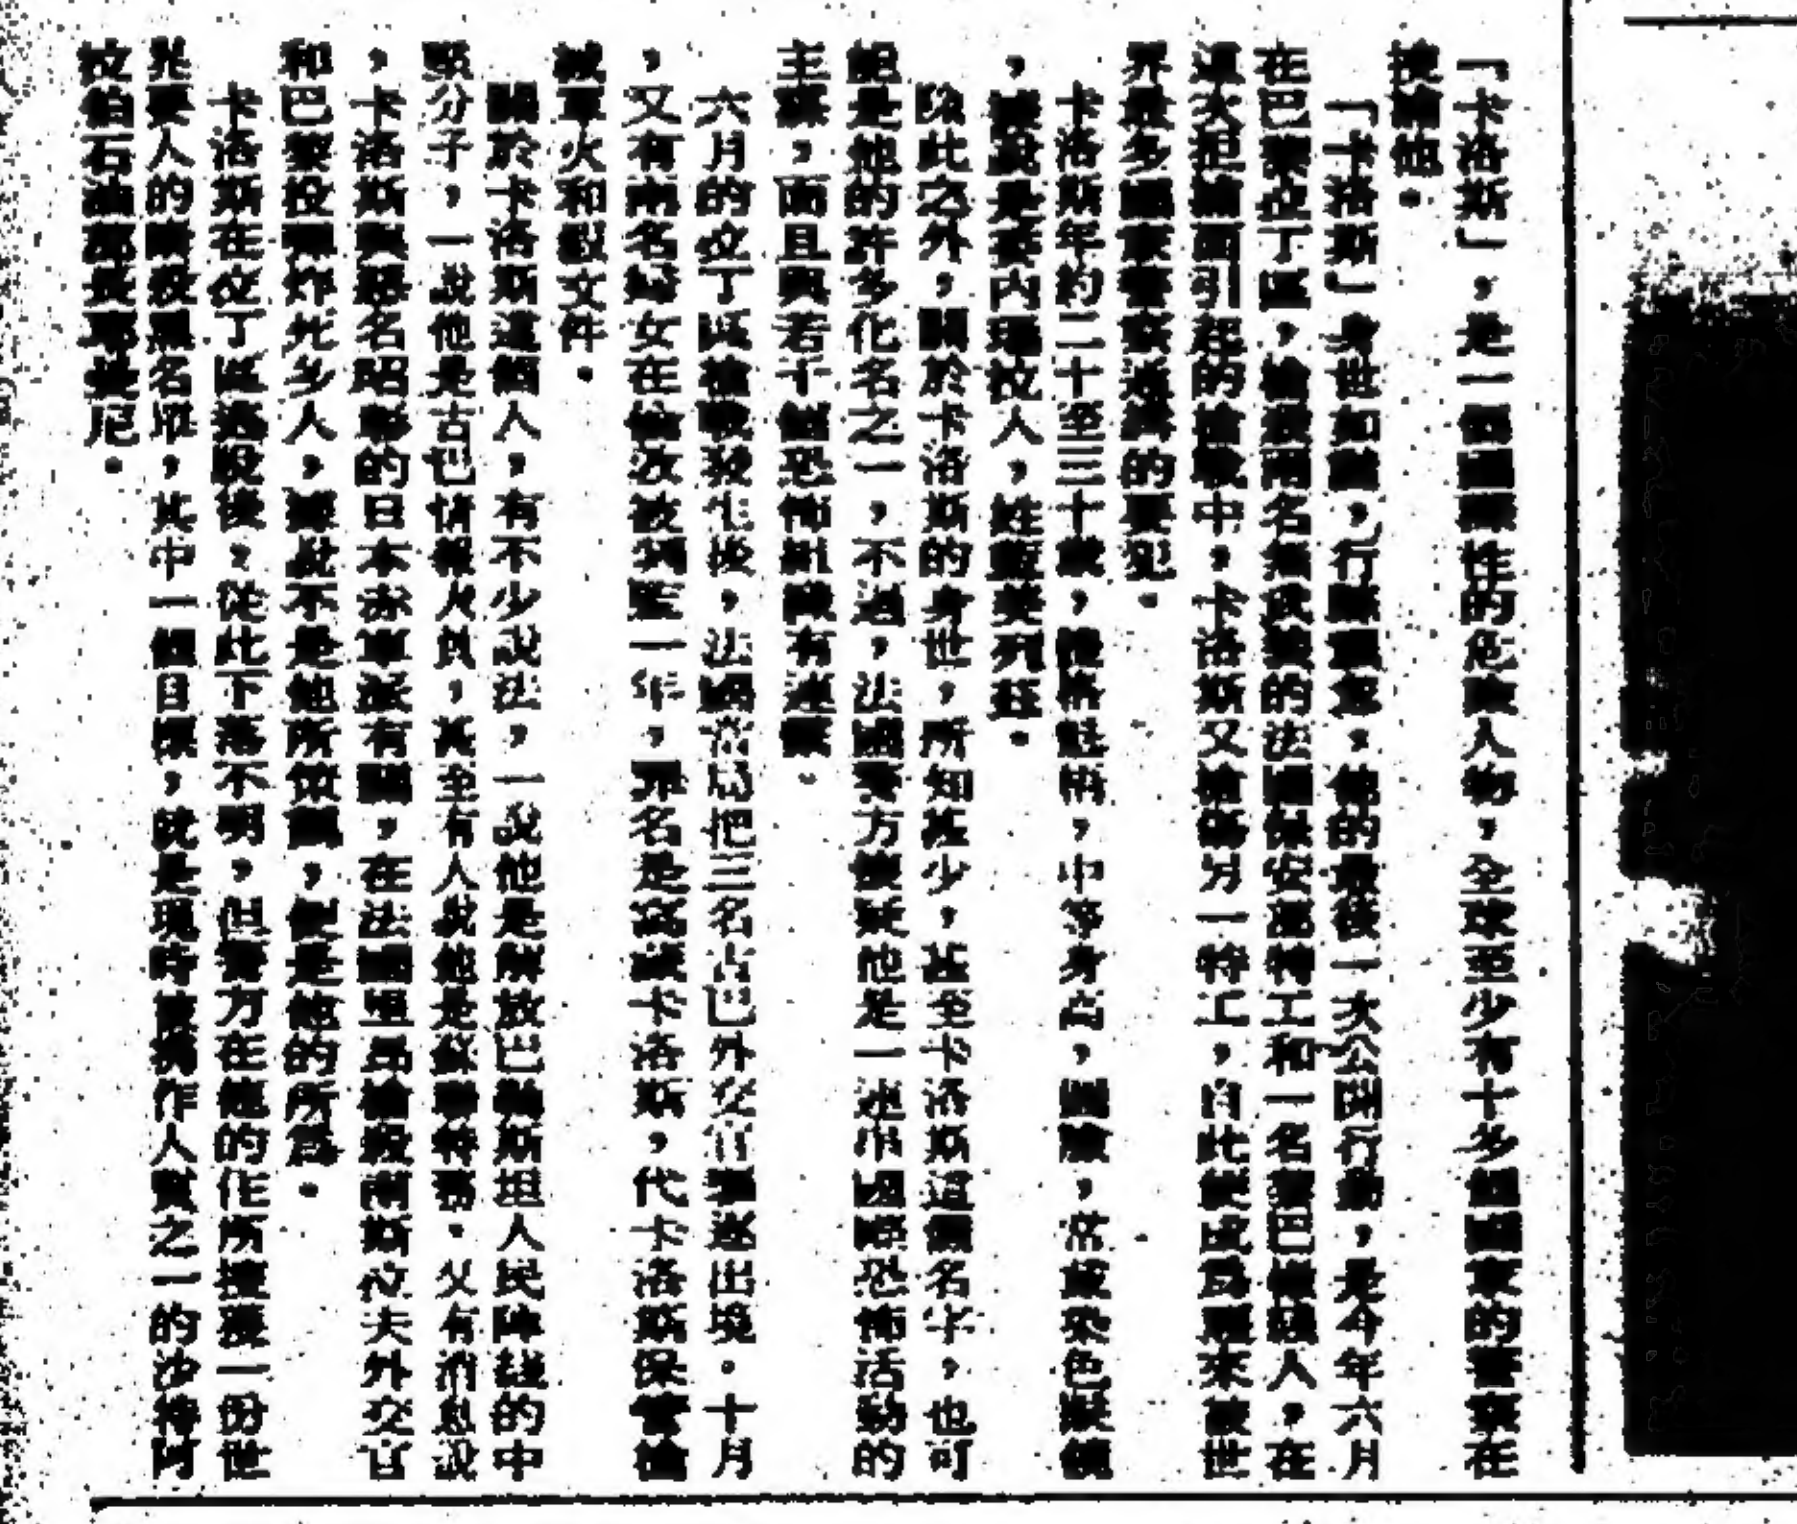 「卡洛斯」，是一個國際性的危險人物，全球至少有十多個國家的警察在
搜捕他。
「卡洛斯」身世如謎，行蹤飄忽，他的最後一次公開行動，是今年六月
在巴黎拉丁區，槍殺兩名無武裝的法國保安處特工和一名黎巴嫩線人，在
這次拒捕而引起的槍戰中，卡洛斯又槍傷另一特工，自此便成爲歷來被世
界最多國家警察追緝的要犯。
卡洛斯年約二十至三十歲，體格魁梧，中等身高，圓臉，常戴茶色眼鏡
，據說是委內瑞拉人，姓
除此之外，關於卡洛斯的身世，所知甚少，甚至卡洛斯這個名字，也可
能是他的許多化名之一，不過，法國警方懷疑他是一連串國際恐怖活動的
主謀，而且與若干個恐怖組織有連繫。
六月的拉丁區槍戰發生後，法國當局把三名古巴外交官驅逐出境。十月
，又有兩名婦女在倫敦被判監一年，罪名是窩藏卡洛斯，代卡洛斯保管槍
械軍火和假文件。
關於卡洛斯這個人，有不少說法，一說他是解放巴勒斯坦人民陣綫的中
堅分子，一說他是古巴情報人員，甚至有人說他是蘇聯特務。又有消息說
，卡洛斯與惡名昭彰的日本赤軍派有關，在法國里昂槍殺南斯拉夫外交官
和巴黎投彈炸死多人，據說不是他所策劃，便是他的所爲。
卡洛斯在拉丁區逃脫後，從此下落不明，但警方在他的住所搜獲一份世
界要人的暗殺黑名單，其中一個目標，就是現時被擄作人質之一的沙特阿
拉伯石油部長耶曼尼。